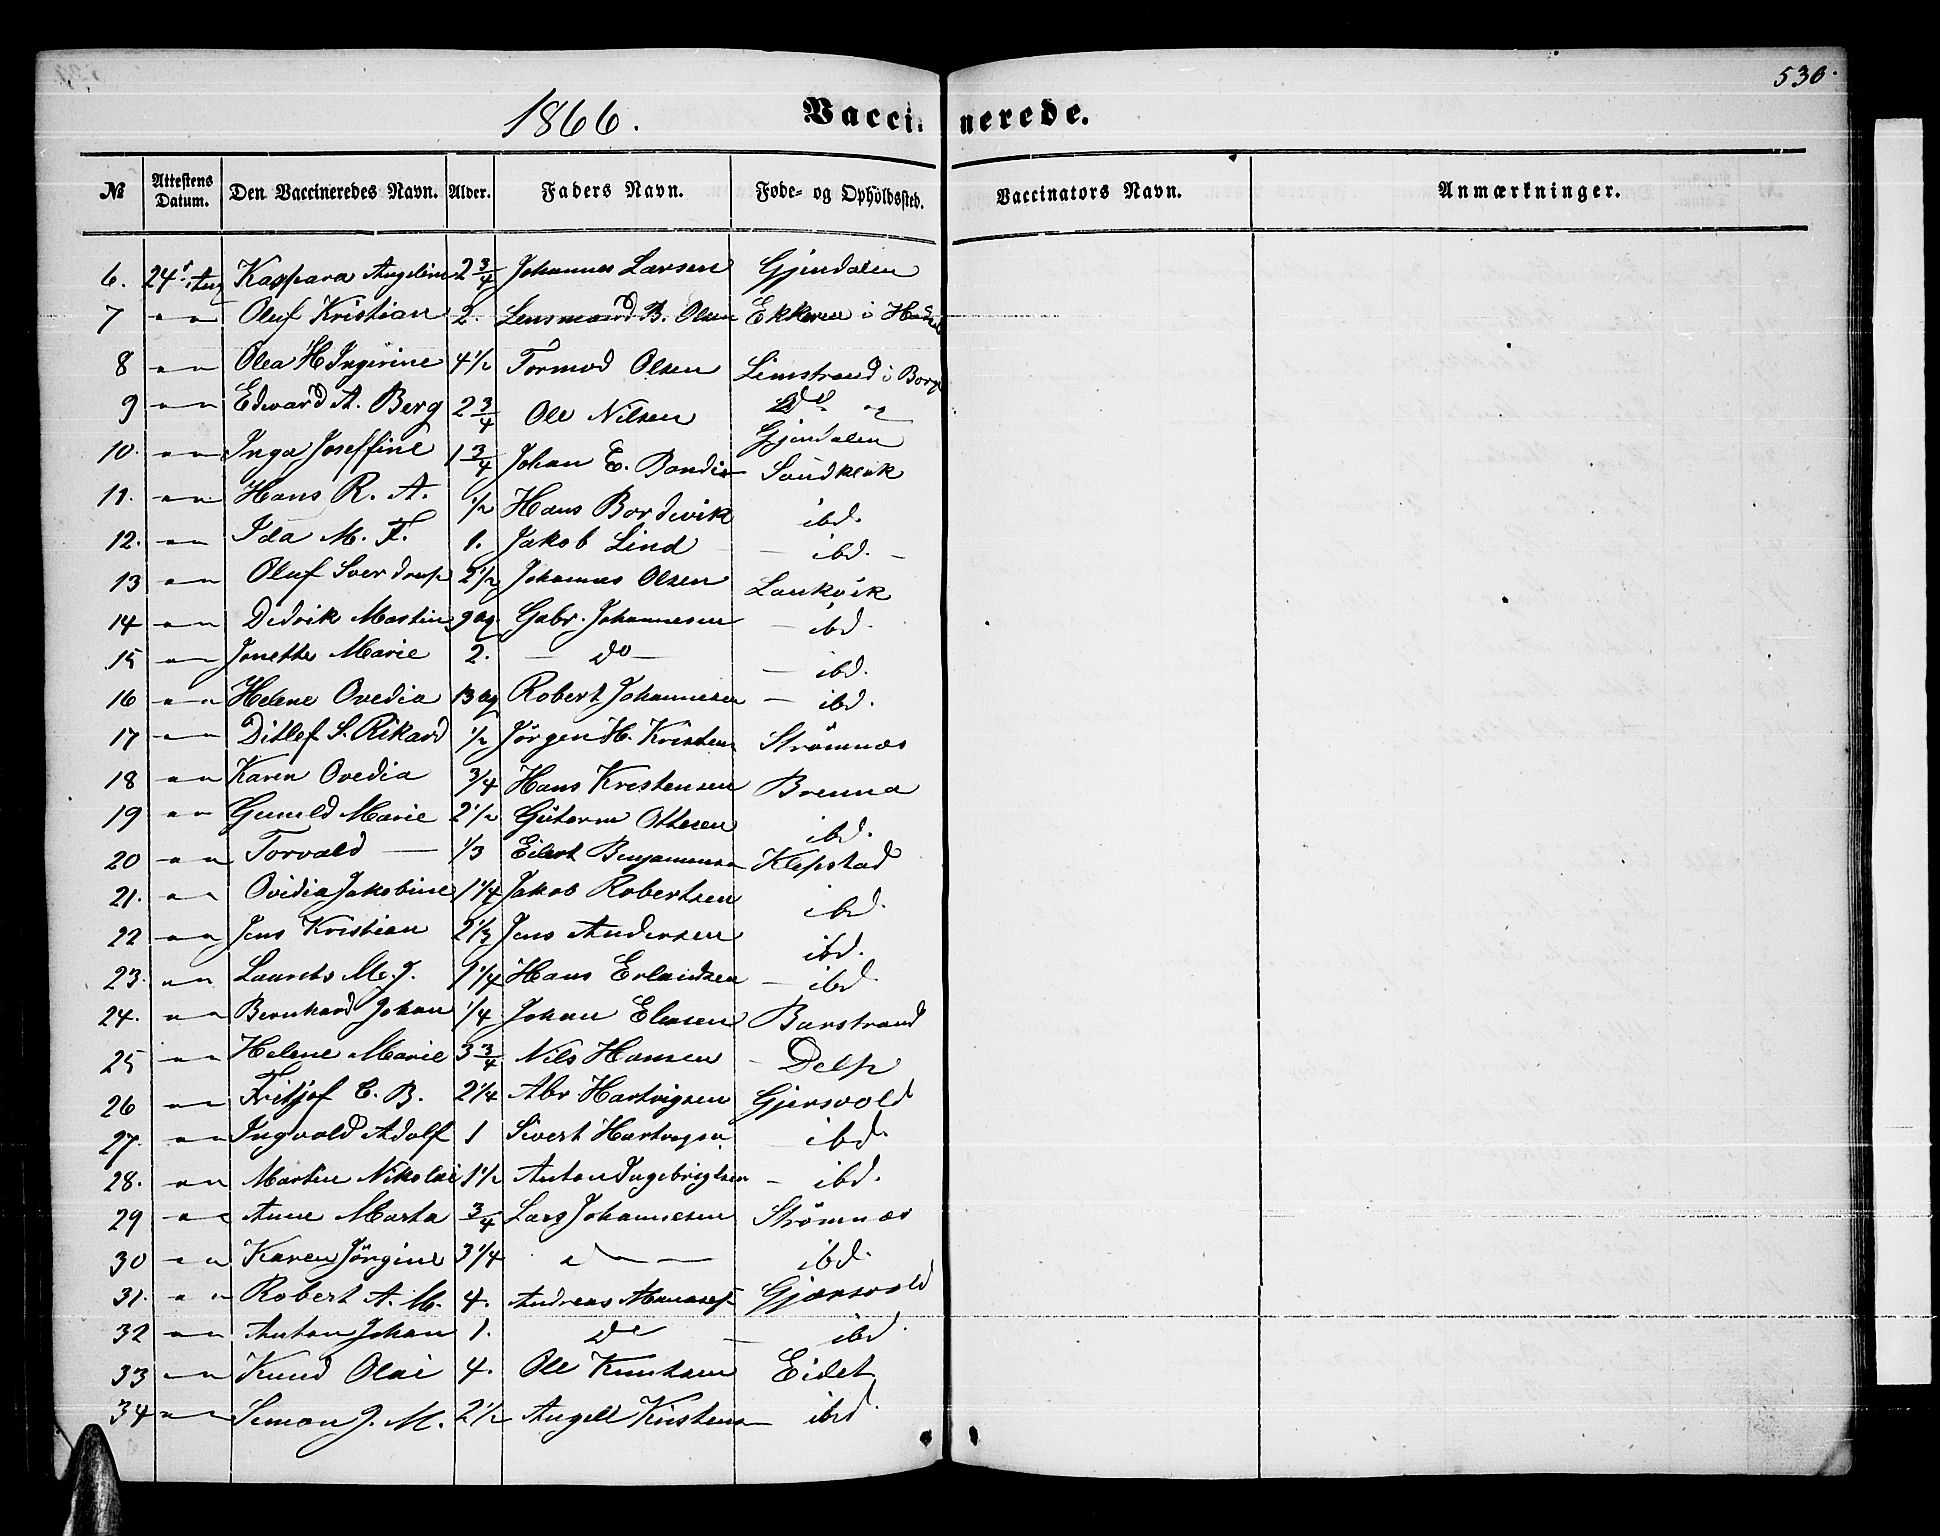 530.
1866. Vaccinerede.
№ Attestens Datum. Den Vaccineredes Navn. Alder. Faders Navn. Føde- og Opholdssted. Vaccinators Navn. Anmærkninger.
6. 24 Aug Kaspara Angeline 2 3/4 Johannes Larsen Gjendalen
7 " " Oluf Kristian 2. Lensmand B. Olsen Ekkeren i Hadsel
8 " " Olea H Ingerine 4 1/2 Tormod Olsen Limstrand i Borge
9 " " Edward A. Berg 2 3/4 Ole Nilsen
10. " " Inga Joseffine 1 3/4 Johan E. Gjendalen Sandklak
11. " " Hans R. A. 1/2 Hans Bordevik ibd.
12. " " Ida M. F. 1. Jakob Lind — ibd. —
13 " " Oluf Sverdrup 2 1/2 Johannes Olsen Laukvik
14 " " Didrik Martin Gabr. Johannesen — ibd.
15 " " Jonette Marie 2. — do — — ibd.
16 " " Helene Ovedia Robert Johannesen — ibd.
17 " " Ditlef S. Rikard 1/2 Jørgen H. Kristens Strømnæs
18 " " Karen Ovedia 3/4 Hans Kristensen Brenna
19 " " Gunild Marie 2 1/2 Guterm Ottesen ibd.
20 " " Torvald — 1/3 Eilert Benjaminsen Klepstad
21. " " Ovidia Jakobine 1 1/4 Jakob Robertsen ibd.
22 " " Jens Kristian 2 1/3 Jens Andersen ibd.
23. " " Laurets M. J. 1 1/4 Hans Erlandsen — ibd.
24. " " Bernhard Johan 1/4 Johan Eleasen Barstrand
25 " " Helene Marie 3 3/4 Nils Hansen — Delp
26 " " Fritjof C. B. 2 1/4 Abr Hartvigsen Gjersvold
27. " " Ingvald Adolf 1 Sivert Hartvigsn — ibd.
28. " " Martin Nikolai 1 1/2 Anton Ingebrigtsen — ibd.
29 " " Anne Marta 3/4 Lars Johannesen Strømnæs
30 " " Karen Jørgine 3 1/4 ibd.
31. " " Robert A. M. 4. Andreas Gjærsvold
32 " " Anton Johan 1. do — ibd.
33 " " Knud Olai 4. Ole Knutsen Eidet
34 " " Simon J. M. 2 1/2 Angell Kristens — ibd